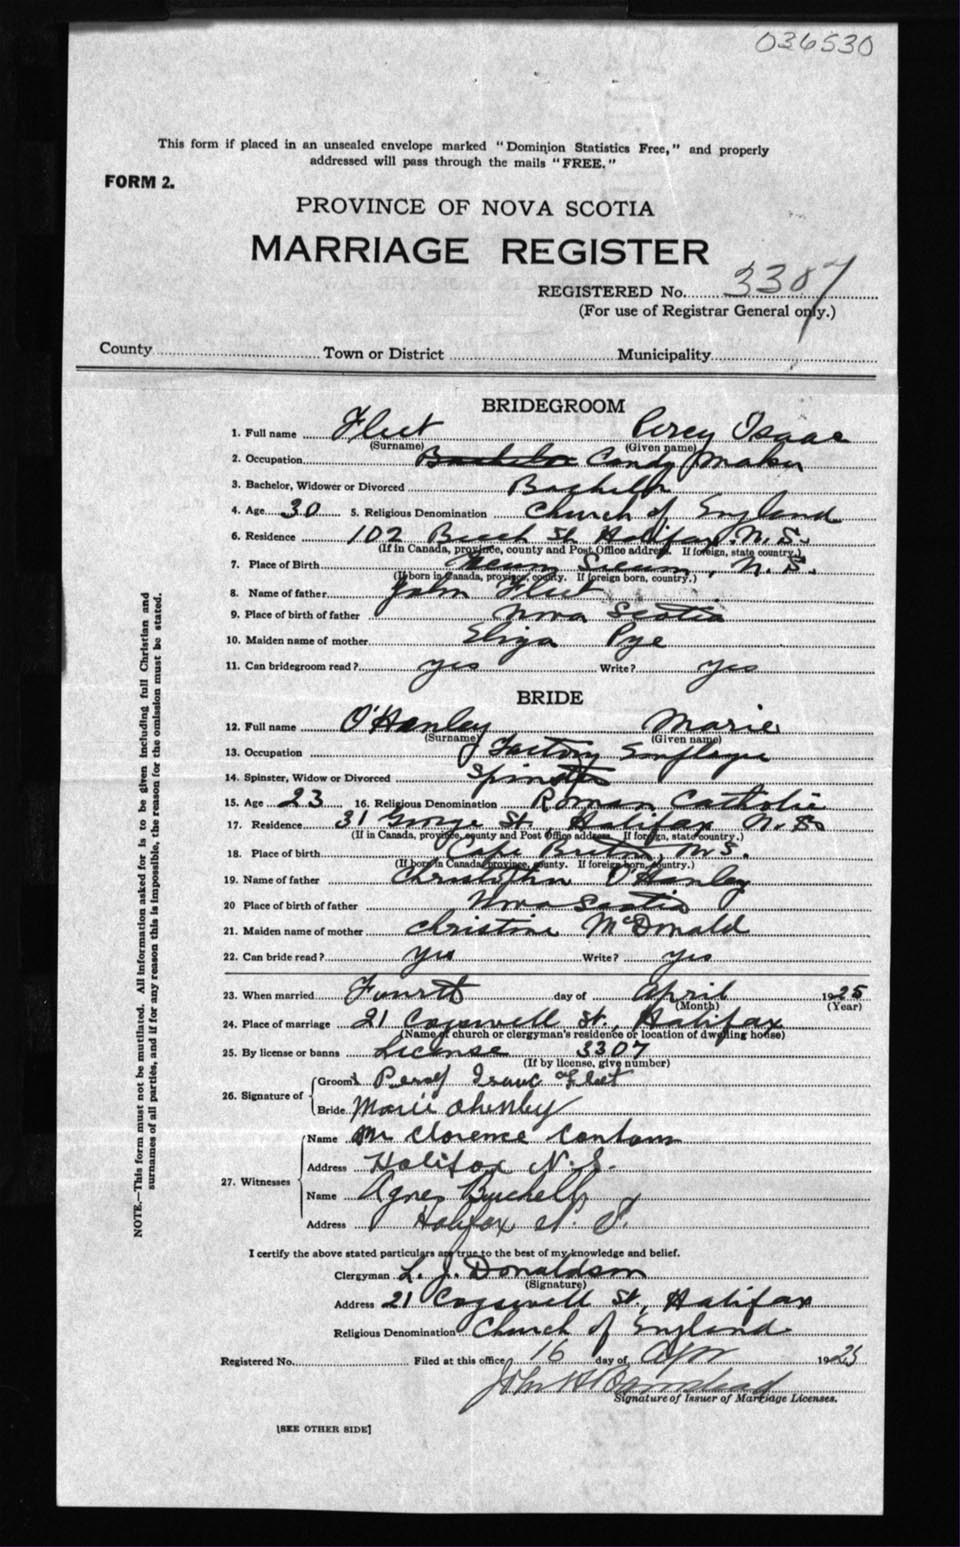 036530
This form if placed in an unsealed envelope marked "Dominion Statistics Free," and properly
addressed will pass through the mails "FREE."
FORM 2.
PROVINCE OF NOVA SCOTIA
MARRIAGE REGISTER
REGISTERED No. 3307
(For use of Registrar General only.)
County Town or District Municipality
BRIDEGROOM
1. Full name Fleet Percy Isaac
(Surname) (Given name)
2. Occupation Bachelor Candy Maker
3. Bachelor, Widower or Divorced Bachelor
4. Age 30 5. Religious Denomination Church of England
6. Residence 102 Beech St Halifax N. S.
(If in Canada, province, county and Post Office address. If foreign, state country.)
7. Place of Birth Necum Secum, N. S.
(If born in Canada, province, county. If foreign born, country.)
8. Name of father John Fleet
9. Place of birth of father Nova Scotia
10. Maiden name of mother Eliza Pye
11. Can bridegroom read? yes Write? yes
BRIDE
12. Full name O'Hanley Marie
(Surname) (Given name)
13. Occupation Factory Employee
14. Spinster, Widow or Divorced Spinster
15. Age 23 16. Religious Denomination Roman Catholic
17. Residence 31 George St., Halifax N. S.
(If in Canada, province, county and Post Office address. If foreign, state country.)
18. Place of birth Cape Breton, N. S.
(If born in Canada, province, county. If foreign born, country.)
19. Name of father O'Hanley
20 Place of birth of father Nova Scotia
21. Maiden name of mother Christine McDonald
22. Can bride read? yes Write? yes
23. When married Fourth day of April 1925
(Month) (Year)
24. Place of marriage 21 Cogswell St., Halifax
(Name of church or clergyman's residence or location of dwelling house)
25. By license or banns License 3307
(If by license, give number)
26. Signature of Groom Percy Isaac Fleet
Bride Marie Ohenley
27. Witnesses Name Mr Clorence
Address Halifax N. S.
Name Agnes Burchell
Address Halifax N. S.
I certify the above stated particulars are true to the best of my knowledge and belief.
Clergyman L. J. Donaldson
(Signature)
Address 21 Cogswell St., Halifax
Religious Denomination Church of England
Registered No. Filed at this office 16 day of Apr 1925
John H Barnstead
Signature of Issuer of Marriage Licenses.
[SEE OTHER SIDE]
NOTE.—This form must not be mutilated. All information asked for is to be given including full Christian and
surnames of all parties, and if for any reason this is impossible, the reason for the omission must be stated.